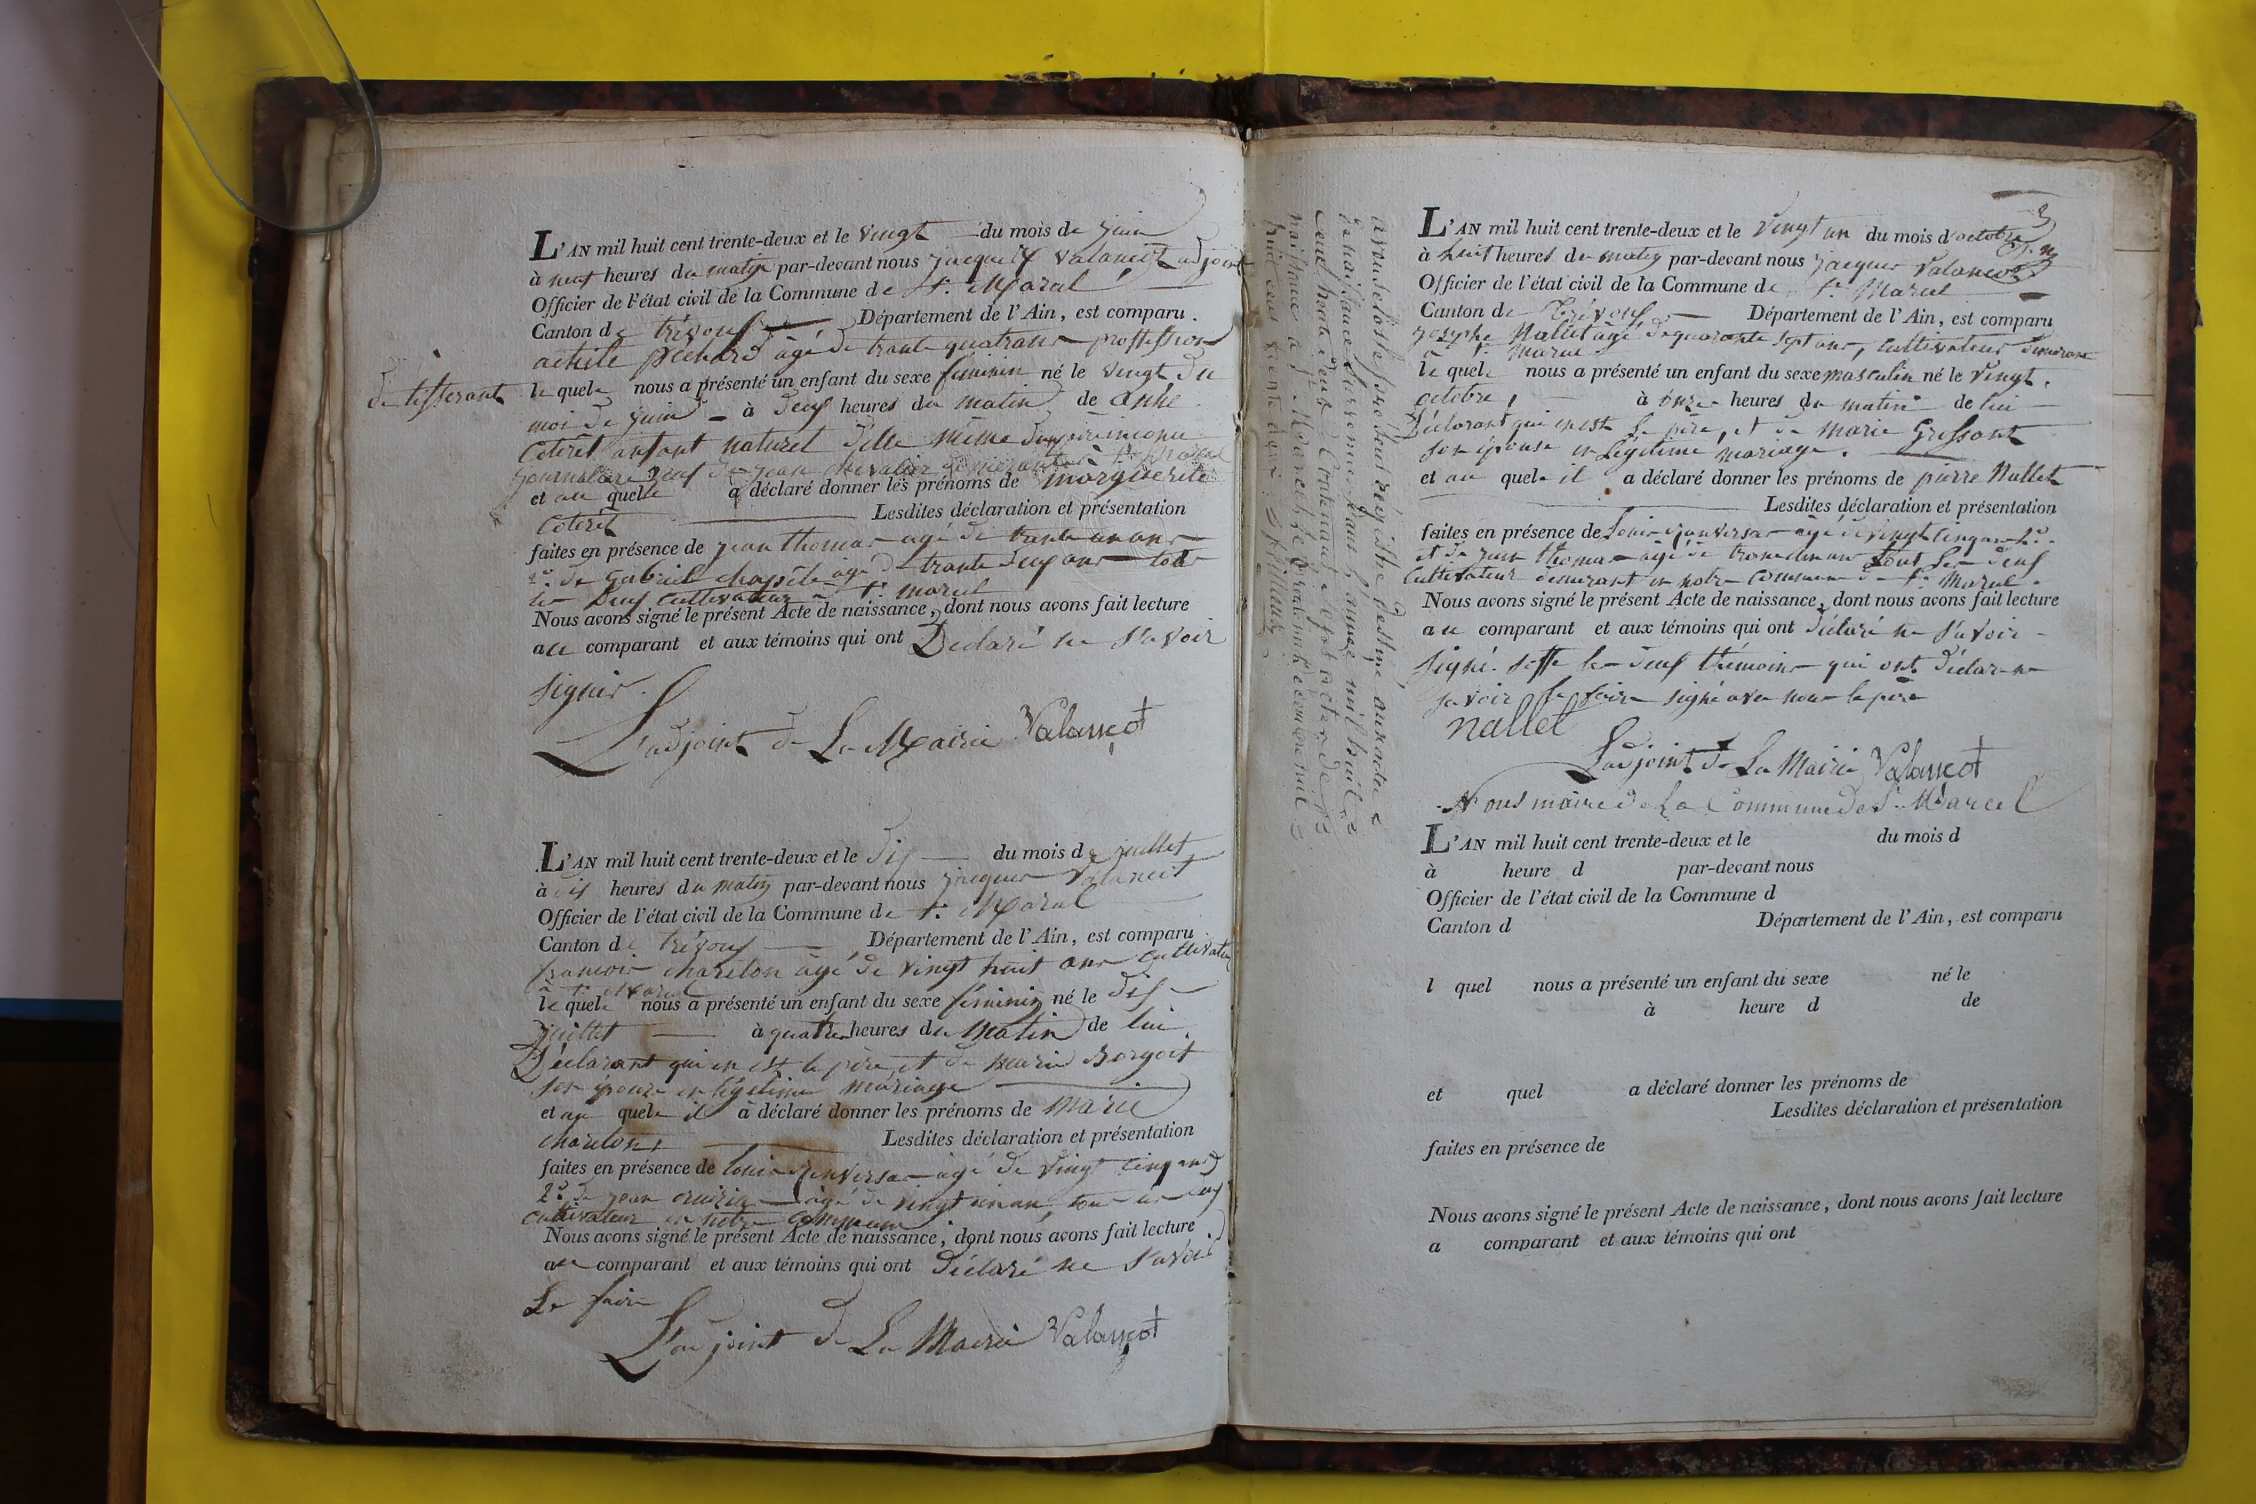 L'AN mil huit cent trente-deux et le vingt du mois de juin
à neuf heures du matin par-devant nous jacque Valancot adjoint
Officier de l'état civil de la Commune de St. Marcel
Canton de trévoux Département de l'Ain, est comparu
âgé de trante quatrans proffession
de tisserant
le quel nous a présenté un enfant du sexe féminin né le vingt du
moi de juin à deux heures du matin de
Coterêt anfant naturel d'elle même
journalière
et au quelle a déclaré donner les prénoms de morguerite
Coterêt Lesdites déclaration et présentation
faites en présence de jean thomas agé de trante un ans
2o. de Gabriel Chapele age de trante deux ans tous
les deux cultivateur à St. marcel
Nous avons signé le présent Acte de naissance, dont nous avons fait lecture
au comparant et aux témoins qui ont Déclaré ne savoir
signer.
L'adjoint de La Mairie Valancot
L'AN mil huit cent trente-deux et le dix du mois de juillet
à dix heures du matin par-devant nous jacques Valancot
Officier de l'état civil de la Commune de St. Marcel
Canton de trévoux Département de l'Ain, est comparu
francois chareton âgé de vingt huit ans cultivateur
à St. Marcel
le quel nous a présenté un enfant du sexe féminin né le dix
juillet à quatre heures du Matin de lui
Déclarant qui en est le père et de marie Borgoit
son épouze en légitime mariage
et au quel il à déclaré donner les prénoms de Marie
chareton Lesdites déclaration et présentation
faites en présence de louis Janversar âgé de vingt cinq ans
2o. de jean âgé de vingt un an tou les deux
cultivateur en notre commune
Nous avons signé le présent Acte de naissance, dont nous avons fait lecture
au comparant et aux témoins qui ont Déclaré ne savoir
Le faire
L'adjoint de La Mairie Valancot
L'AN mil huit cent trente-deux et le vingt un du mois d'octobre
à huit heures du matin par-devant nous jacques Valancot
Officier de l'état civil de la Commune de St. Marcel
Canton de Trévoux Département de l'Ain, est comparu
josephe Nallet âgé de quarante sept ans, cultivateur demeurant
à St. Marcel
le quel nous a présenté un enfant du sexe masculin né le vingt
octobre, à onze heures du matin de lui
Déclarant qui en est le père, et de Marie Gressant
son épouse en légitime mariage.
et au quel il a déclaré donner les prénoms de pierre Nallet
Lesdites déclaration et présentation
faites en présence de Louis Janversar âgé de vingt cinq ans 2o.
et de jean thomas âgé de trante un ans tout les deux
Cultivateur demeurant en notre commune de St. Marcel
Nous avons signé le présent Acte de naissance, dont nous avons fait lecture
au comparant et aux témoins qui ont déclaré ne savoir
signé. les deux thémoins qui ont déclare ne
savoir le faire signé avec nous le père
nallet
L'adjoint de La Mairie Valancot
Nous maire de La Commune de St. Marcel
L'AN mil huit cent trente-deux et le du mois d
à heure d par-devant nous
Officier de l'état civil de la Commune d
Canton d Département de l'Ain, est comparu
l quel nous a présenté un enfant du sexe né le
à heure d de
et quel a déclaré donner les prénoms de
Lesdites déclaration et présentation
faites en présence de
Nous avons signé le présent Acte de naissance, dont nous avons fait lecture
a comparant et aux témoins qui ont
avons clos le présent régistre destiné aux actes
de naissance survenus dans l'année mil huit
cent trente deux Contenant actes de
naissance a St. Marcel le trente un décembre mil
huit cent trente deux